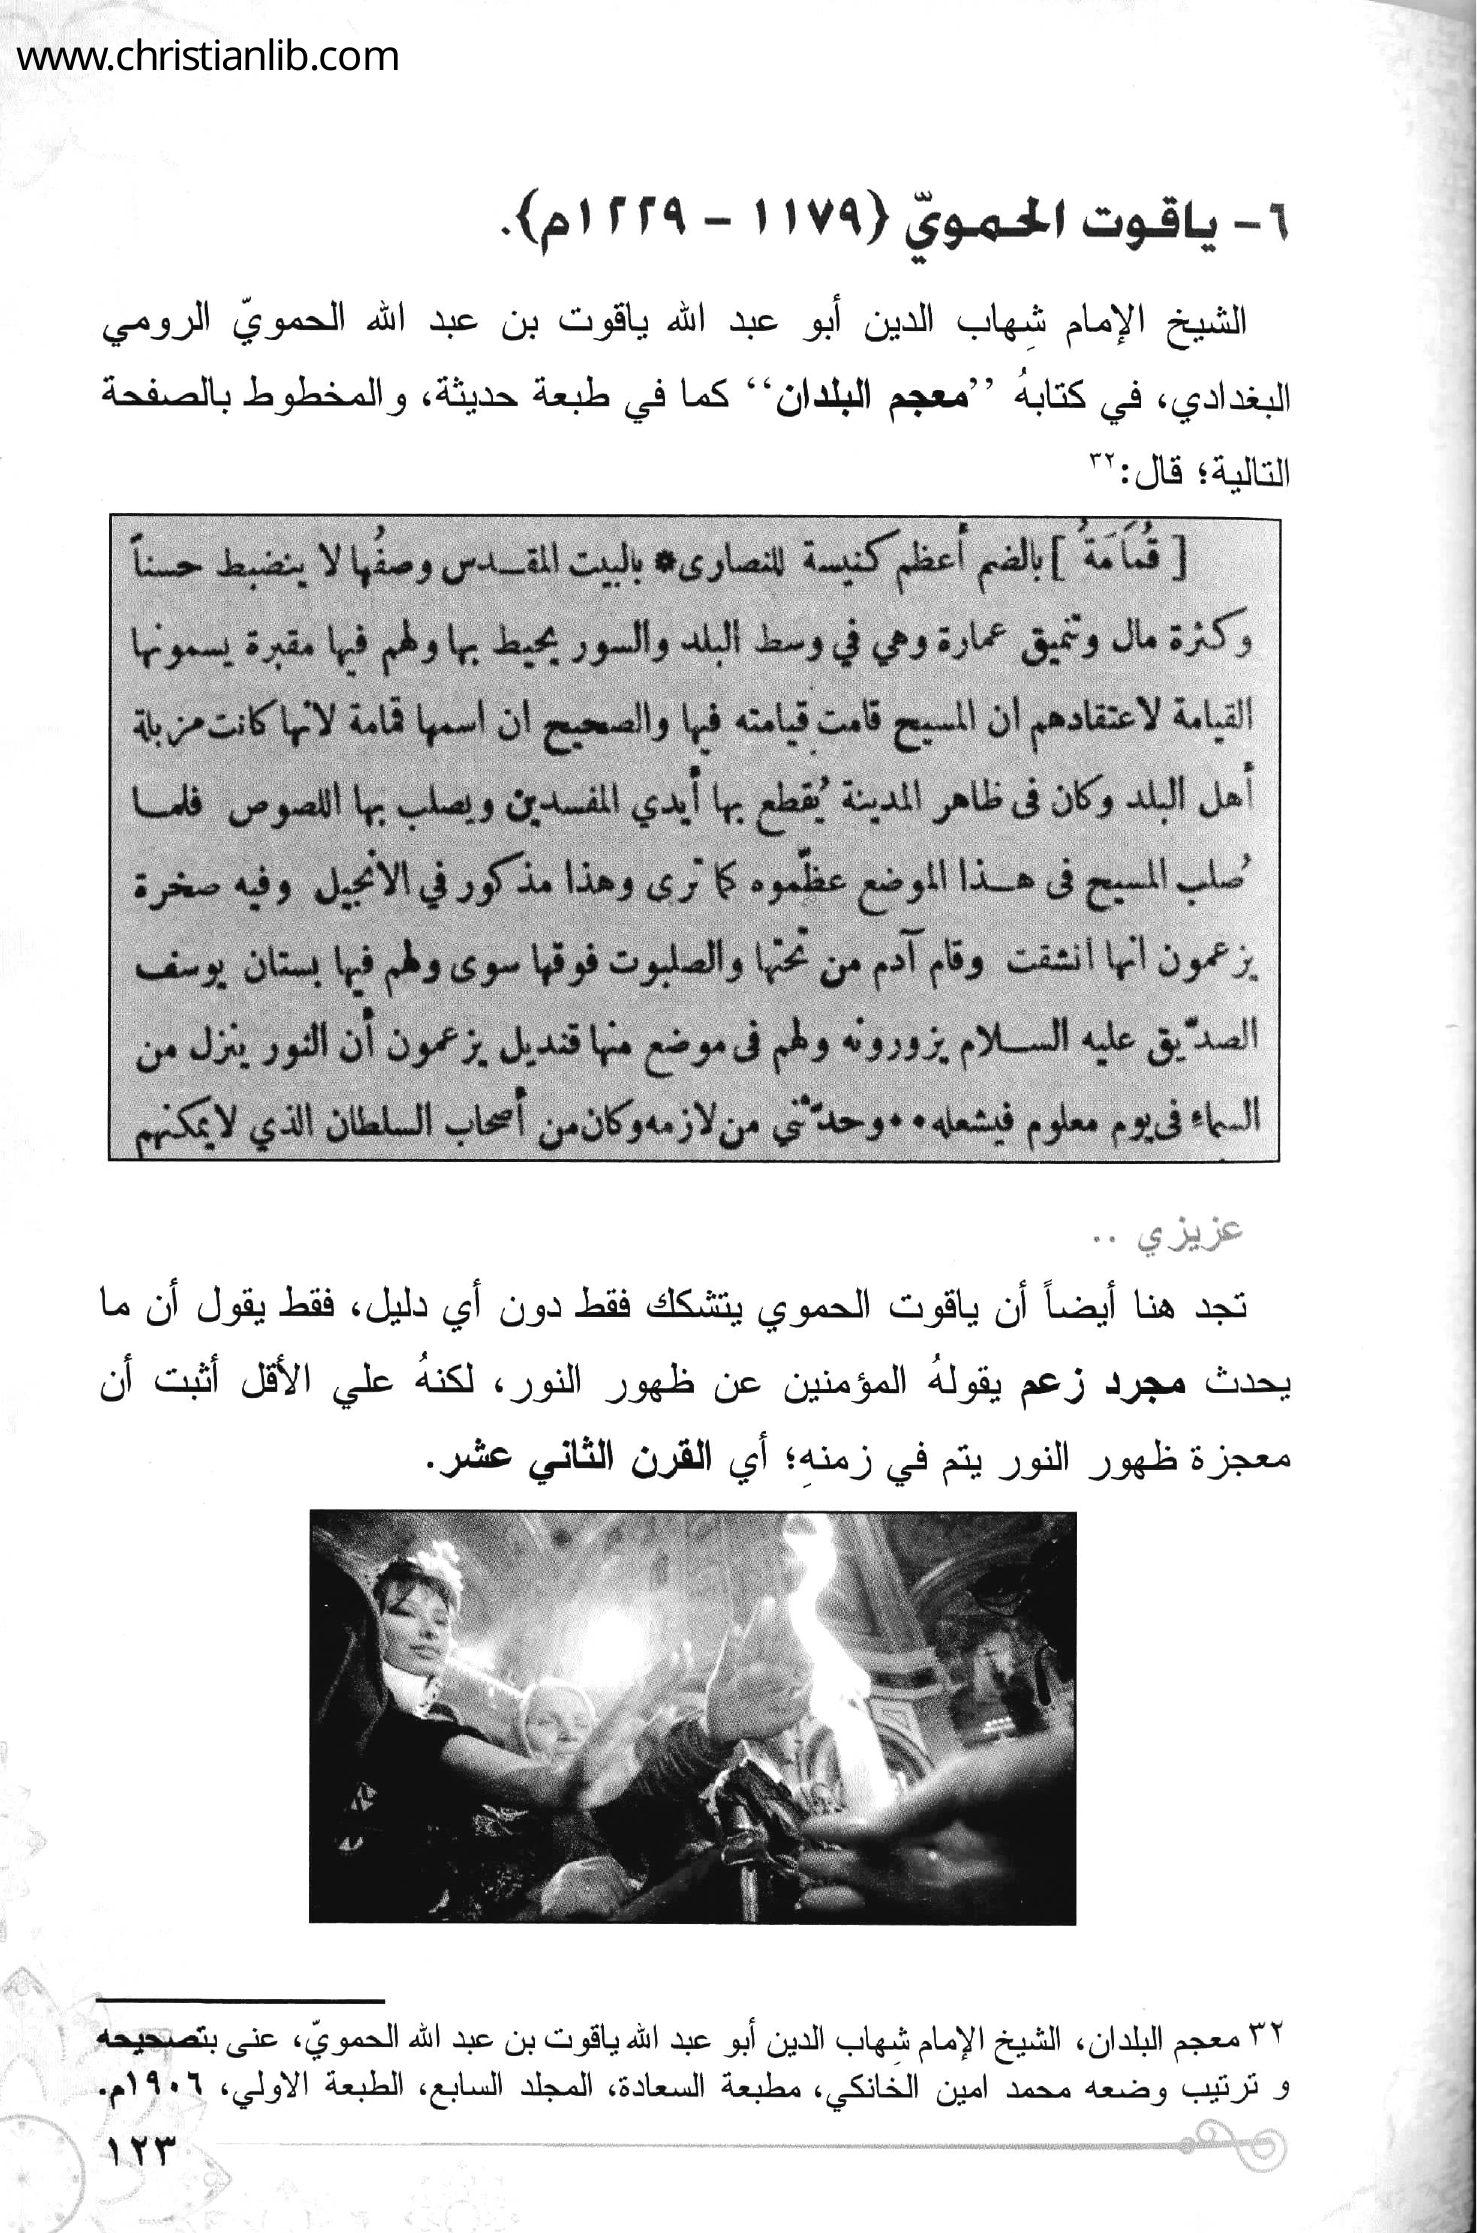 www.christianlib.com
٦- ياقوت الحمويّ {١١٧٩ - ١٢٢٩م}.
الشيخ الإمام شِهاب الدين أبو عبد الله ياقوت بن عبد الله الحمويّ الرومي
البغدادي، في كتابهُ ’’معجم البلدان‘‘ كما في طبعة حديثة، والمخطوط بالصفحة
التالية؛ قال:٣٢
[ قُمَامَةُ ] بالضم أعظم كنيسة للنصارى * بالبيت المقدس وصفُها لا ينضبط حسناً
وكثرة مال وتنميق عمارة وهي في وسط البلد والسور يحيط بها ولهم فيها مقبرة يسمونها
القيامة لاعتقادهم ان المسيح قامت قيامته فيها والصحيح ان اسمها قمامة لانها كانت مزبلة
أهل البلد وكان فى ظاهر المدينة يُقطع بها أيدي المفسدين ويصلب بها اللصوص فلما
صُلب المسيح فى هذا الموضع عظّموه كما ترى وهذا مذكور في الانجيل وفيه صخرة
يزعمون انها انشقت وقام آدم من تحتها والصلبوت فوقها سوى ولهم فيها بستان يوسف
الصدّيق عليه السلام يزورونه ولهم فى موضع منها قنديل يزعمون أن النور ينزل من
السماء فى يوم معلوم فيشعله •• وحدّثني من لازمه وكان من أصحاب السلطان الذي لا يمكنهم
عزيزي ..
تجد هنا أيضاً أن ياقوت الحموي يتشكك فقط دون أي دليل، فقط يقول أن ما
يحدث مجرد زعم يقولهُ المؤمنين عن ظهور النور، لكنهُ علي الأقل أثبت أن
معجزة ظهور النور يتم في زمنهِ؛ أي القرن الثاني عشر.
٣٢ معجم البلدان، الشيخ الإمام شِهاب الدين أبو عبد الله ياقوت بن عبد الله الحمويّ، عنى بتصحيحه
و ترتيب وضعه محمد امين الخانكي، مطبعة السعادة، المجلد السابع، الطبعة الاولي، ١٩٠٦م.
١٢٣